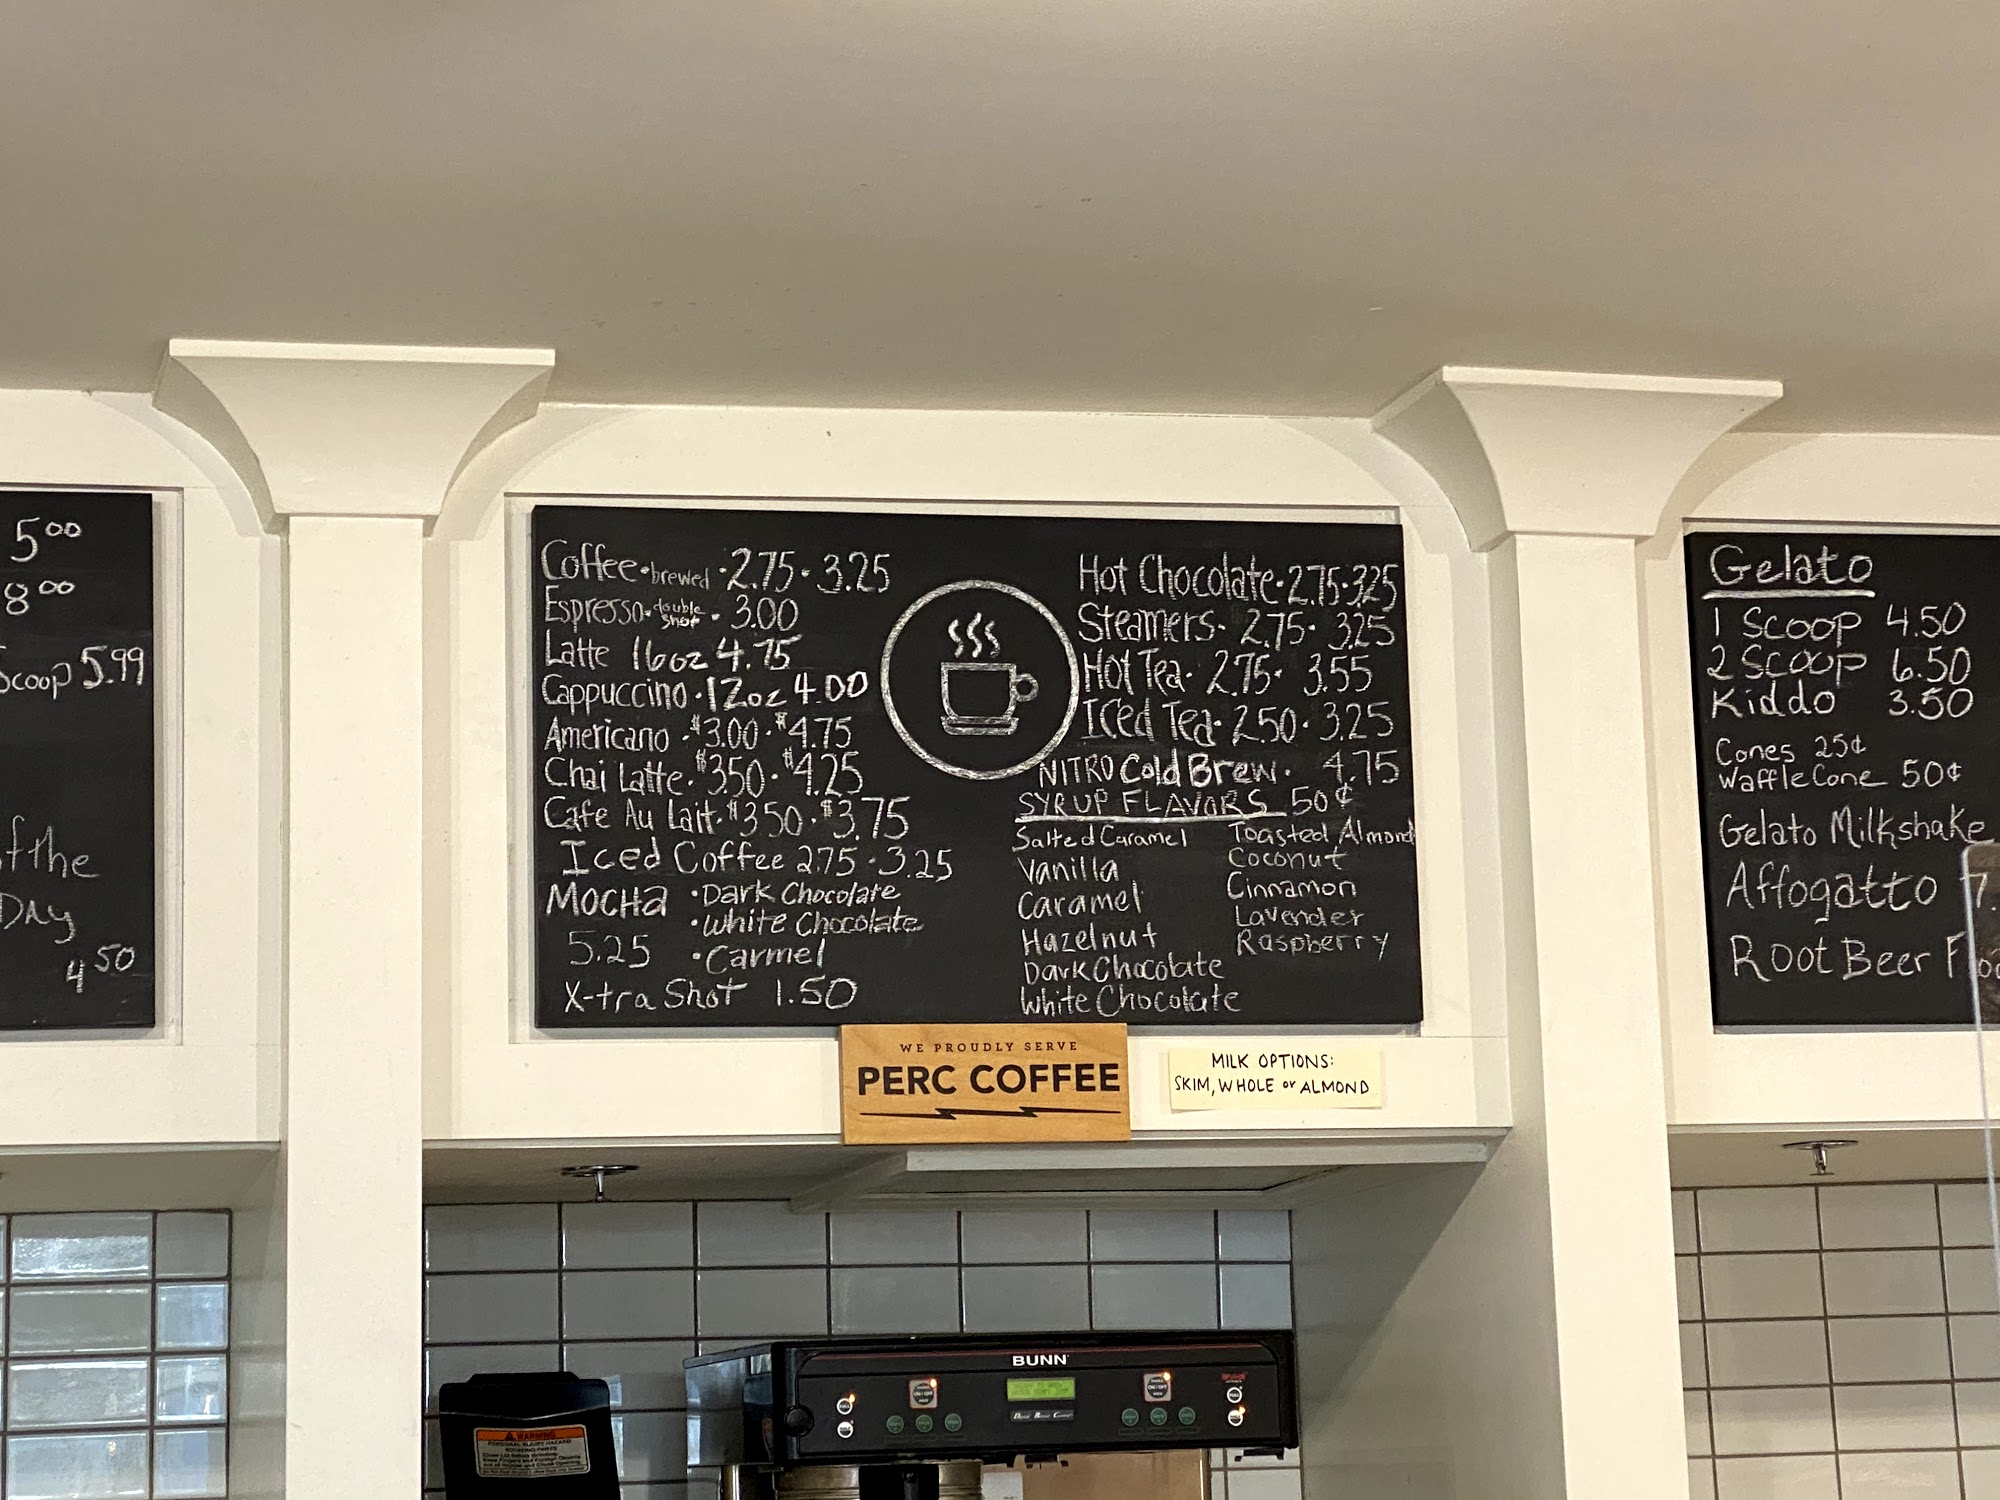 5⁰⁰
8⁰⁰
Scoop 5.99
of the
Day
4⁵⁰
Coffee • brewed • 2.75 • 3.25
Espresso • double shot • 3.00
Latte 16oz 4.75
Cappuccino • 12oz 4.00
Americano • $3.00 • $4.75
Chai Latte • $3.50 • $4.25
Cafe Au Lait • $3.50 • $3.75
Iced Coffee 2.75 • 3.25
MOCHA • Dark Chocolate
• White Chocolate
5.25 • Carmel
X-tra Shot 1.50
Hot Chocolate • 2.75 • 3.25
Steamers • 2.75 • 3.25
Hot Tea • 2.75 • 3.55
Iced Tea • 2.50 • 3.25
NITRO Cold Brew • 4.75
SYRUP FLAVORS 50¢
Salted Caramel
Vanilla
Caramel
Hazelnut
Dark Chocolate
White Chocolate
Toasted Almond
Coconut
Cinnamon
Lavender
Raspberry
Gelato
1 Scoop 4.50
2 Scoop 6.50
Kiddo 3.50
Cones 25¢
Waffle Cone 50¢
Gelato Milkshake
Affogatto 7.
Root Beer Floa
WE PROUDLY SERVE
PERC COFFEE
MILK OPTIONS:
SKIM, WHOLE or ALMOND
BUNN
WARNING